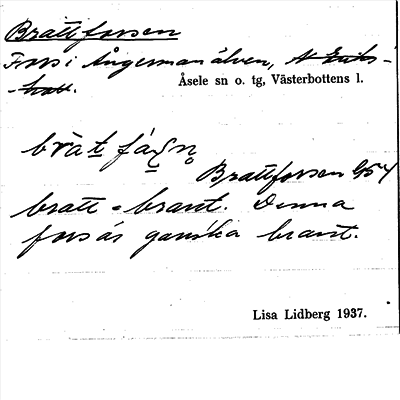 Brattforsen
Fors i Ångermanälven,
Åsele sn o. tg, Västerbottens l.
Brattforsen G54
bratt = brant. Denna
fors är ganska brant.
Lisa Lidberg 1937.